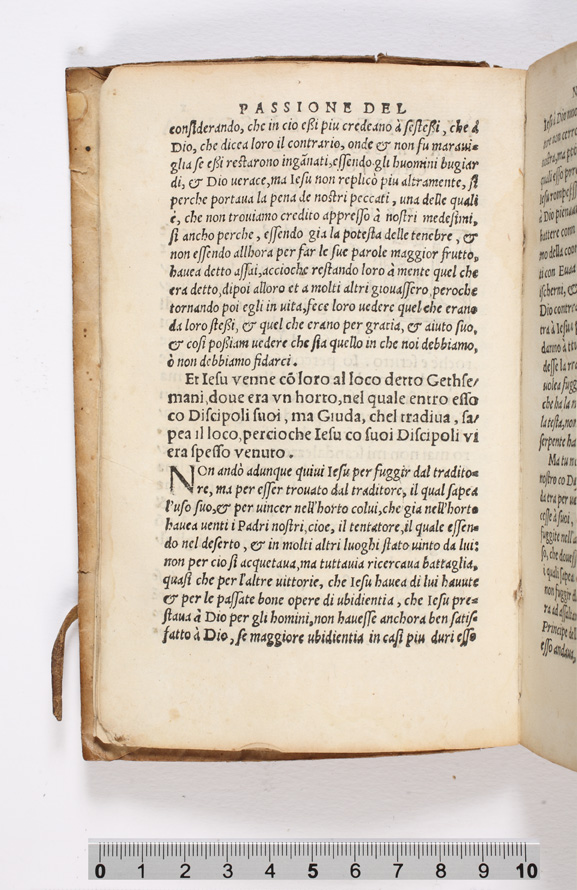 PASSIONE DEL
considerando, che in cio eßi piu credeano à sesteßi, che à
Dio, che dicea loro il contrario, onde & non fu maraui=
glia se eßi restarono ingãnati, essendo gli huomini bugiar
di, & Dio verace, ma Iesu non replicò piu altramente, sì
perche portaua la pena de nostri peccati, una delle quali
è, che non trouiamo credito appresso à nostri medesimi,
sì ancho perche, essendo gia la potesta delle tenebre, &
non essendo allhora per far le sue parole maggior frutto,
hauea detto assai, accioche restando loro à mente quel che
era detto, dipoi alloro et a molti altri giouassero, peroche
tornando poi egli in vita, fece loro uedere quel che erano
da loro steßi, & quel che erano per gratia, & aiuto suo,
& così poßiam uedere che sia quello in che noi debbiamo,
ò non debbiamo fidarci.
Et Iesu venne cõ loro al loco detto Gethse/
mani, doue era vn horto, nel quale entro esso
co Discipoli suoi, ma Giuda, chel tradiua, sa/
pea il loco, percioche Iesu co suoi Discipoli vi
era spesso venuto.
NOn andò adunque quiui Iesu per fuggir dal tradito=
re, ma per esser trouato dal traditore, il qual sapea
l'uso suo, & per uincer nell'horto colui, che gia nell'horto
hauea uenti i Padri nostri, cioe, il tentatore, il quale essen=
do nel deserto, & in molti altri luoghi stato uinto da lui:
non per cio si acquetaua, ma tuttauia ricercaua battaglia,
quasi che per l'altre uittorie, che Iesu hauea di lui hauute
& per le passate bone opere di ubidientia, che Iesu pre=
staua à Dio per gli homini, non hauesse anchora ben satis=
fatto à Dio, se maggiore ubidientia in casi piu duri esso
0 1 2 3 4 5 6 7 8 9 10